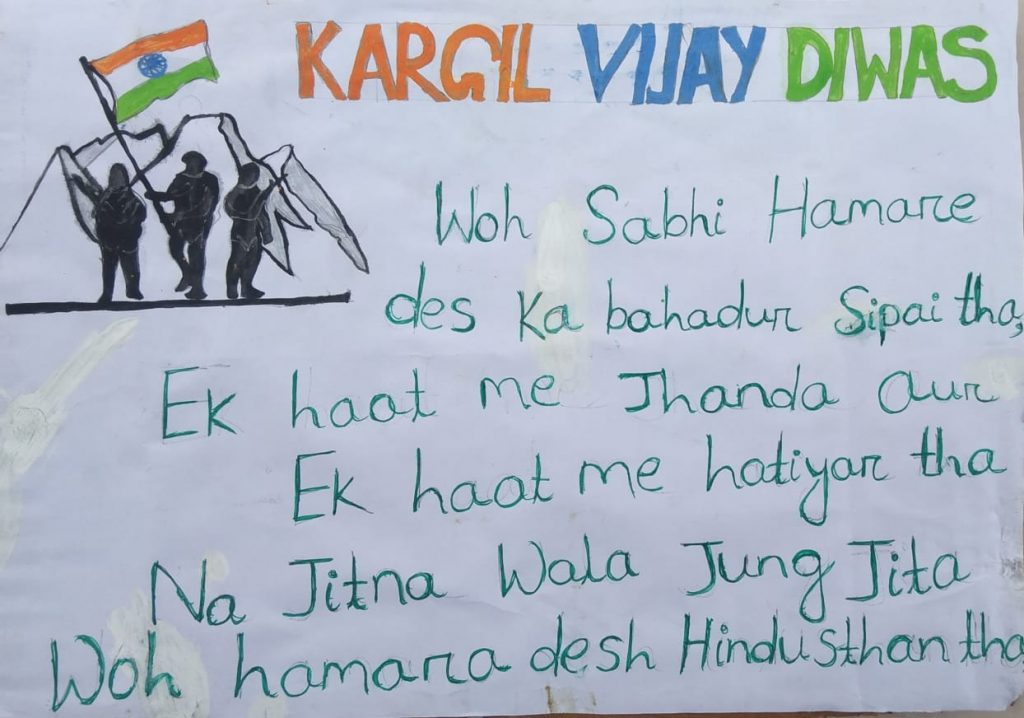 KARGIL VIJAY DIWAS
Woh Sabhi Hamare
des Ka bahadur Sipai tha,
Ek haat me Jhanda aur
Ek haat me hatiyar tha
Na Jitna Wala Jung Jita
Woh hamara desh Hindusthan tha